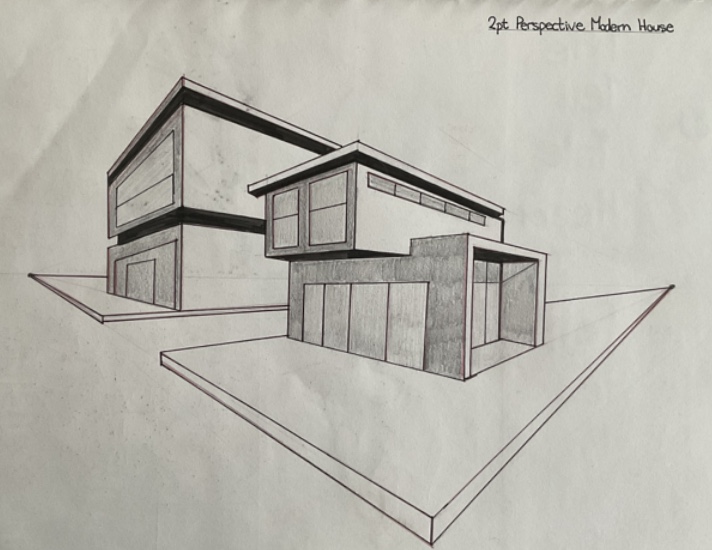 2pt Perspective Modern House